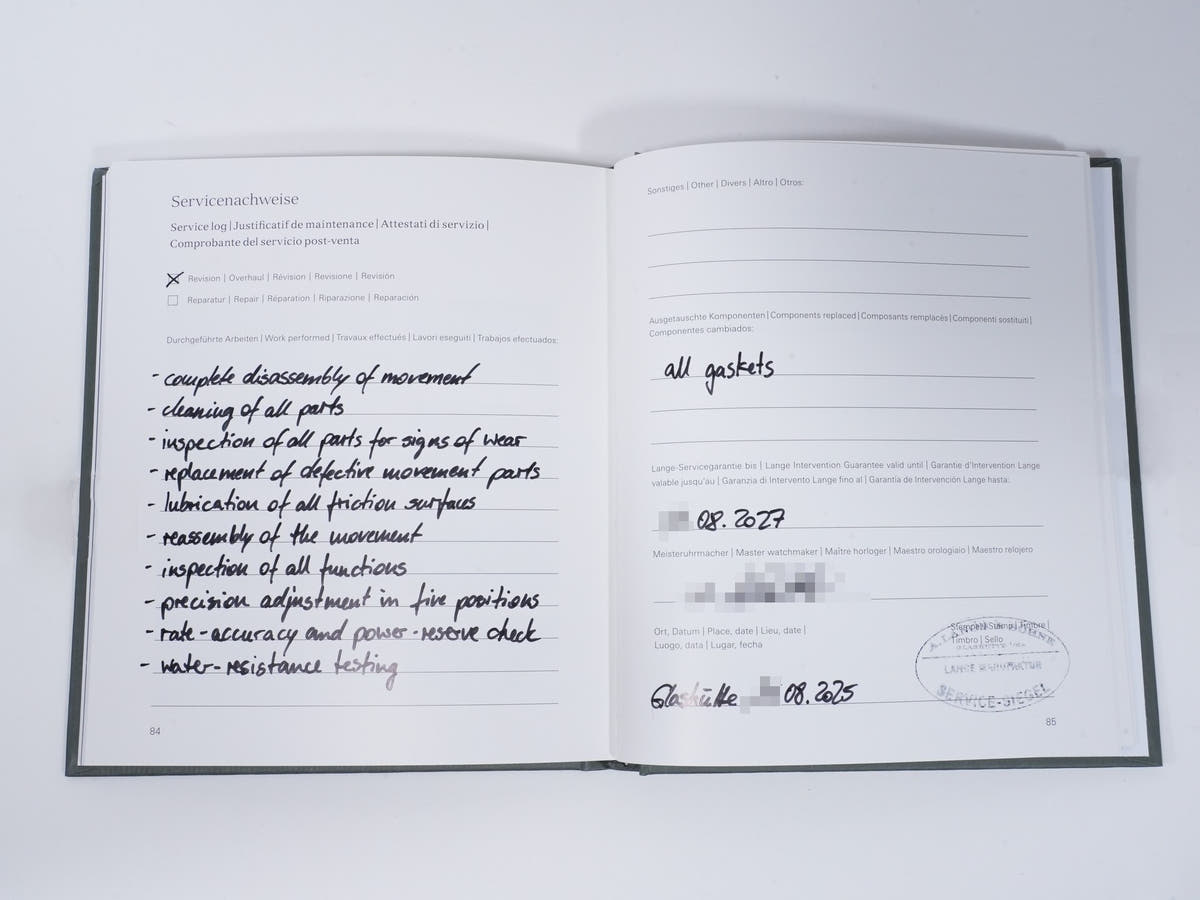 Servicenachweise
Service log | Justificatif de maintenance | Attestati di servizio |
Comprobante del servicio post-venta
Revision | Overhaul | Révision | Revisione | Revisión
Reparatur | Repair | Réparation | Riparazione | Reparación
Durchgeführte Arbeiten | Work performed | Travaux effectués | Lavori eseguiti | Trabajos efectuados:
- complete disassembly of movement
- cleaning of all parts
- inspection of all parts for signs of wear
- replacement of defective movement parts
- lubrication of all friction surfaces
- reassembly of the movement
- inspection of all functions
- precision adjustment in five positions
- rate-accuracy and power-reserve check
- water-resistance testing
84
Sonstiges | Other | Divers | Altro | Otros:
Ausgetauschte Komponenten | Components replaced | Composants remplacés | Componenti sostituiti |
Componentes cambiados:
all gaskets
Lange-Servicegarantie bis | Lange Intervention Guarantee valid until | Garantie d'Intervention Lange
valable jusqu'au | Garanzia di Intervento Lange fino al | Garantía de Intervención Lange hasta:
08.2027
Meisteruhrmacher | Master watchmaker | Maître horloger | Maestro orologiaio | Maestro relojero
Ort, Datum | Place, date | Lieu, date |
Luogo, data | Lugar, fecha
Stempel | Stamp | Timbre |
Timbro | Sello
LANGE MANUFAKTUR
SERVICE-SIEGEL
Glashütte 08.2025
85